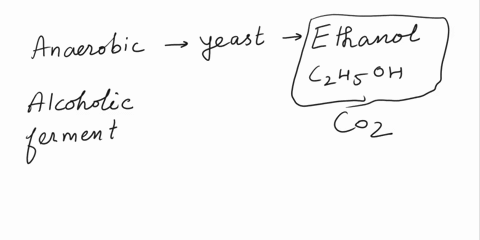 Anaerobic → yeast → Ethanol
C2H5OH
Alcoholic
ferment
CO2